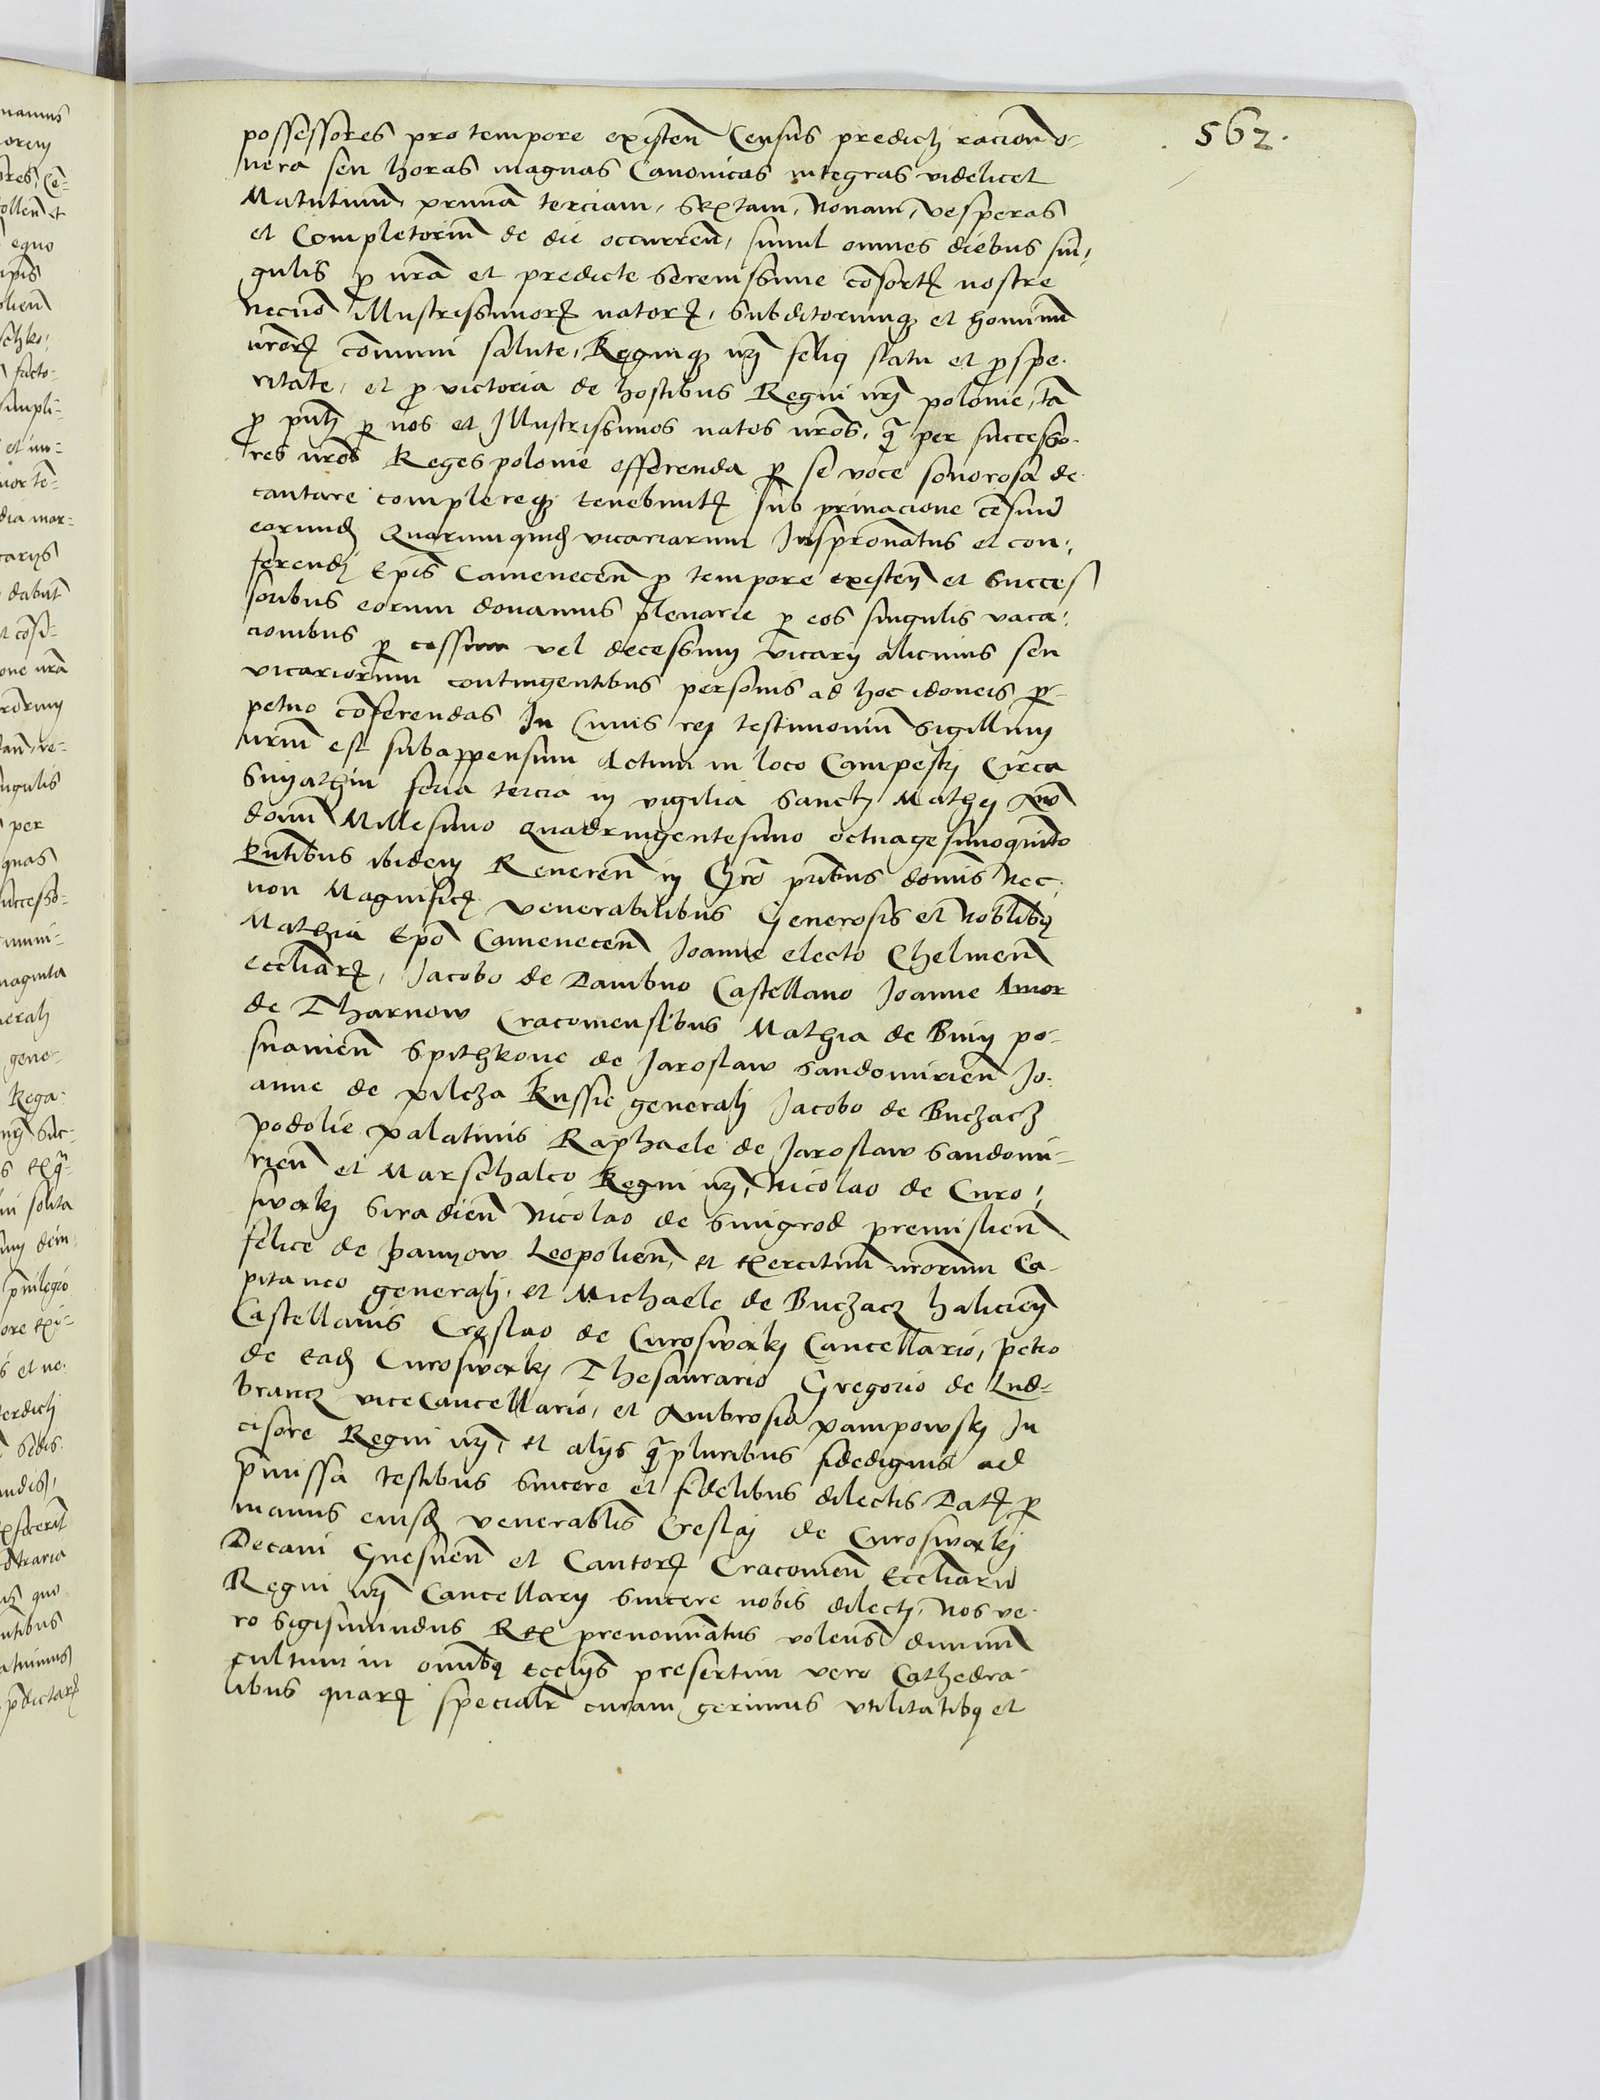 562.
possessores pro tempore existen Census predicti racion o-
nera seu horas magnas Canonicas integras videlicet
Matutinu, primā terciam, sextam, Nonam, vesperas
et Completoriū de die occurren, simul omnes diebus sin,
gulis p nrā et predicte Serenissime cōsortis nostre
Necnō Illustrissimorꝝ natorꝝ, Subditorumqꝫ et hominū
nrōrꝝ cōmuni salute, Regniqꝫ nrj felicj statu et pspe.
ritate, et p victoria de hostibus Regni nrj polonie, tā
p pnti p nos et Illustrissimos natos nros, q per successo.
res nros Reges polonie offerenda p se voce sonorosa de
cantare complereqꝫ tenebuntꝝ sub priuacione cēsuū
eorund Quarumquid vicariarum Juspronatus et con,
ferendj Epis Camenecen p tempore existen et Succes
soribus eorum donamus plenarie p eos singulis vaca,
cionibus p cessum vel decessum vicarij alicuius seu
vicariorum contingentibus personis ad hoc idoneis p-
petuo cōferendas In Cuius rej testimoniū Sigillum
nrm est subappensum Actum in loco Campestrj Circa
Snyathin feria tercia in vigilia Sanctj Mathej Anō
domi Millesimo quadringentesimo octuagesimoquinto
pntibus ibidem Reueren in Chro pribus domis Nec,
non Magnificꝭ venerabilibus Generosis et nobilibꝫ
Mathia Epō Camenecen Joanne electo Chelmen
eccliarꝝ, Jacobo de Dambno Castellano Joanne Amor
de Tharnow Cracouiensibus Mathia de Bnin po-
snanien Spithkone de Jaroslaw Sandomirien Jo-
anne de pilcza Russie generalj Jacobo de Buczacz
podolie palatinis Raphaele de Jaroslaw Sandomi-
rien et Marschalco Regni nrj, Nicolao de Curo,
swakj Siradien Nicolao de Smigrod premislien
felice de panyow Leopolien, et exercituū nrorum Ca-
pitaneo generalj, et Michaele de Buczacz halicien
Castellanis Creslao de Curoswakj Cancellario, petro
de Ead Curoswakj Thesaurario Gregorio de Lud-
brancz viceCancellario, et Ambrosio pampowskj In
cisore Regni nrj, et alijs q̄pluribus fidedignis ad
pmissa testibus sincere et fidelibus dilectis Datꝝ p
manus eiusd venerablis Creslaj de Curoswakj
Decani Gnesnen et Cantorꝭ Cracouien Eccliarū
Regni nrj Cancellarij sincere nobis dilectj, Nos ve-
ro Sigismundus Rex prenominatus volens diuinū
cultum in omibꝫ ecclijs presertim vero Cathedra-
libus quarꝝ specialr curam gerimus vtilitatibꝫ et